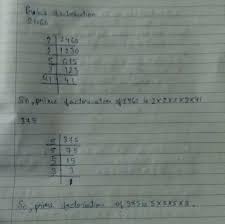 Prime factorisation
2460
2 | 2460
2 | 1230
5 | 615
3 | 123
41 | 41
So, prime factorisation of 2460 is 2x2x5x3x41
375
5 | 375
5 | 75
5 | 15
3 | 3
1
So, prime factorisation of 375 is 5x5x5x3.